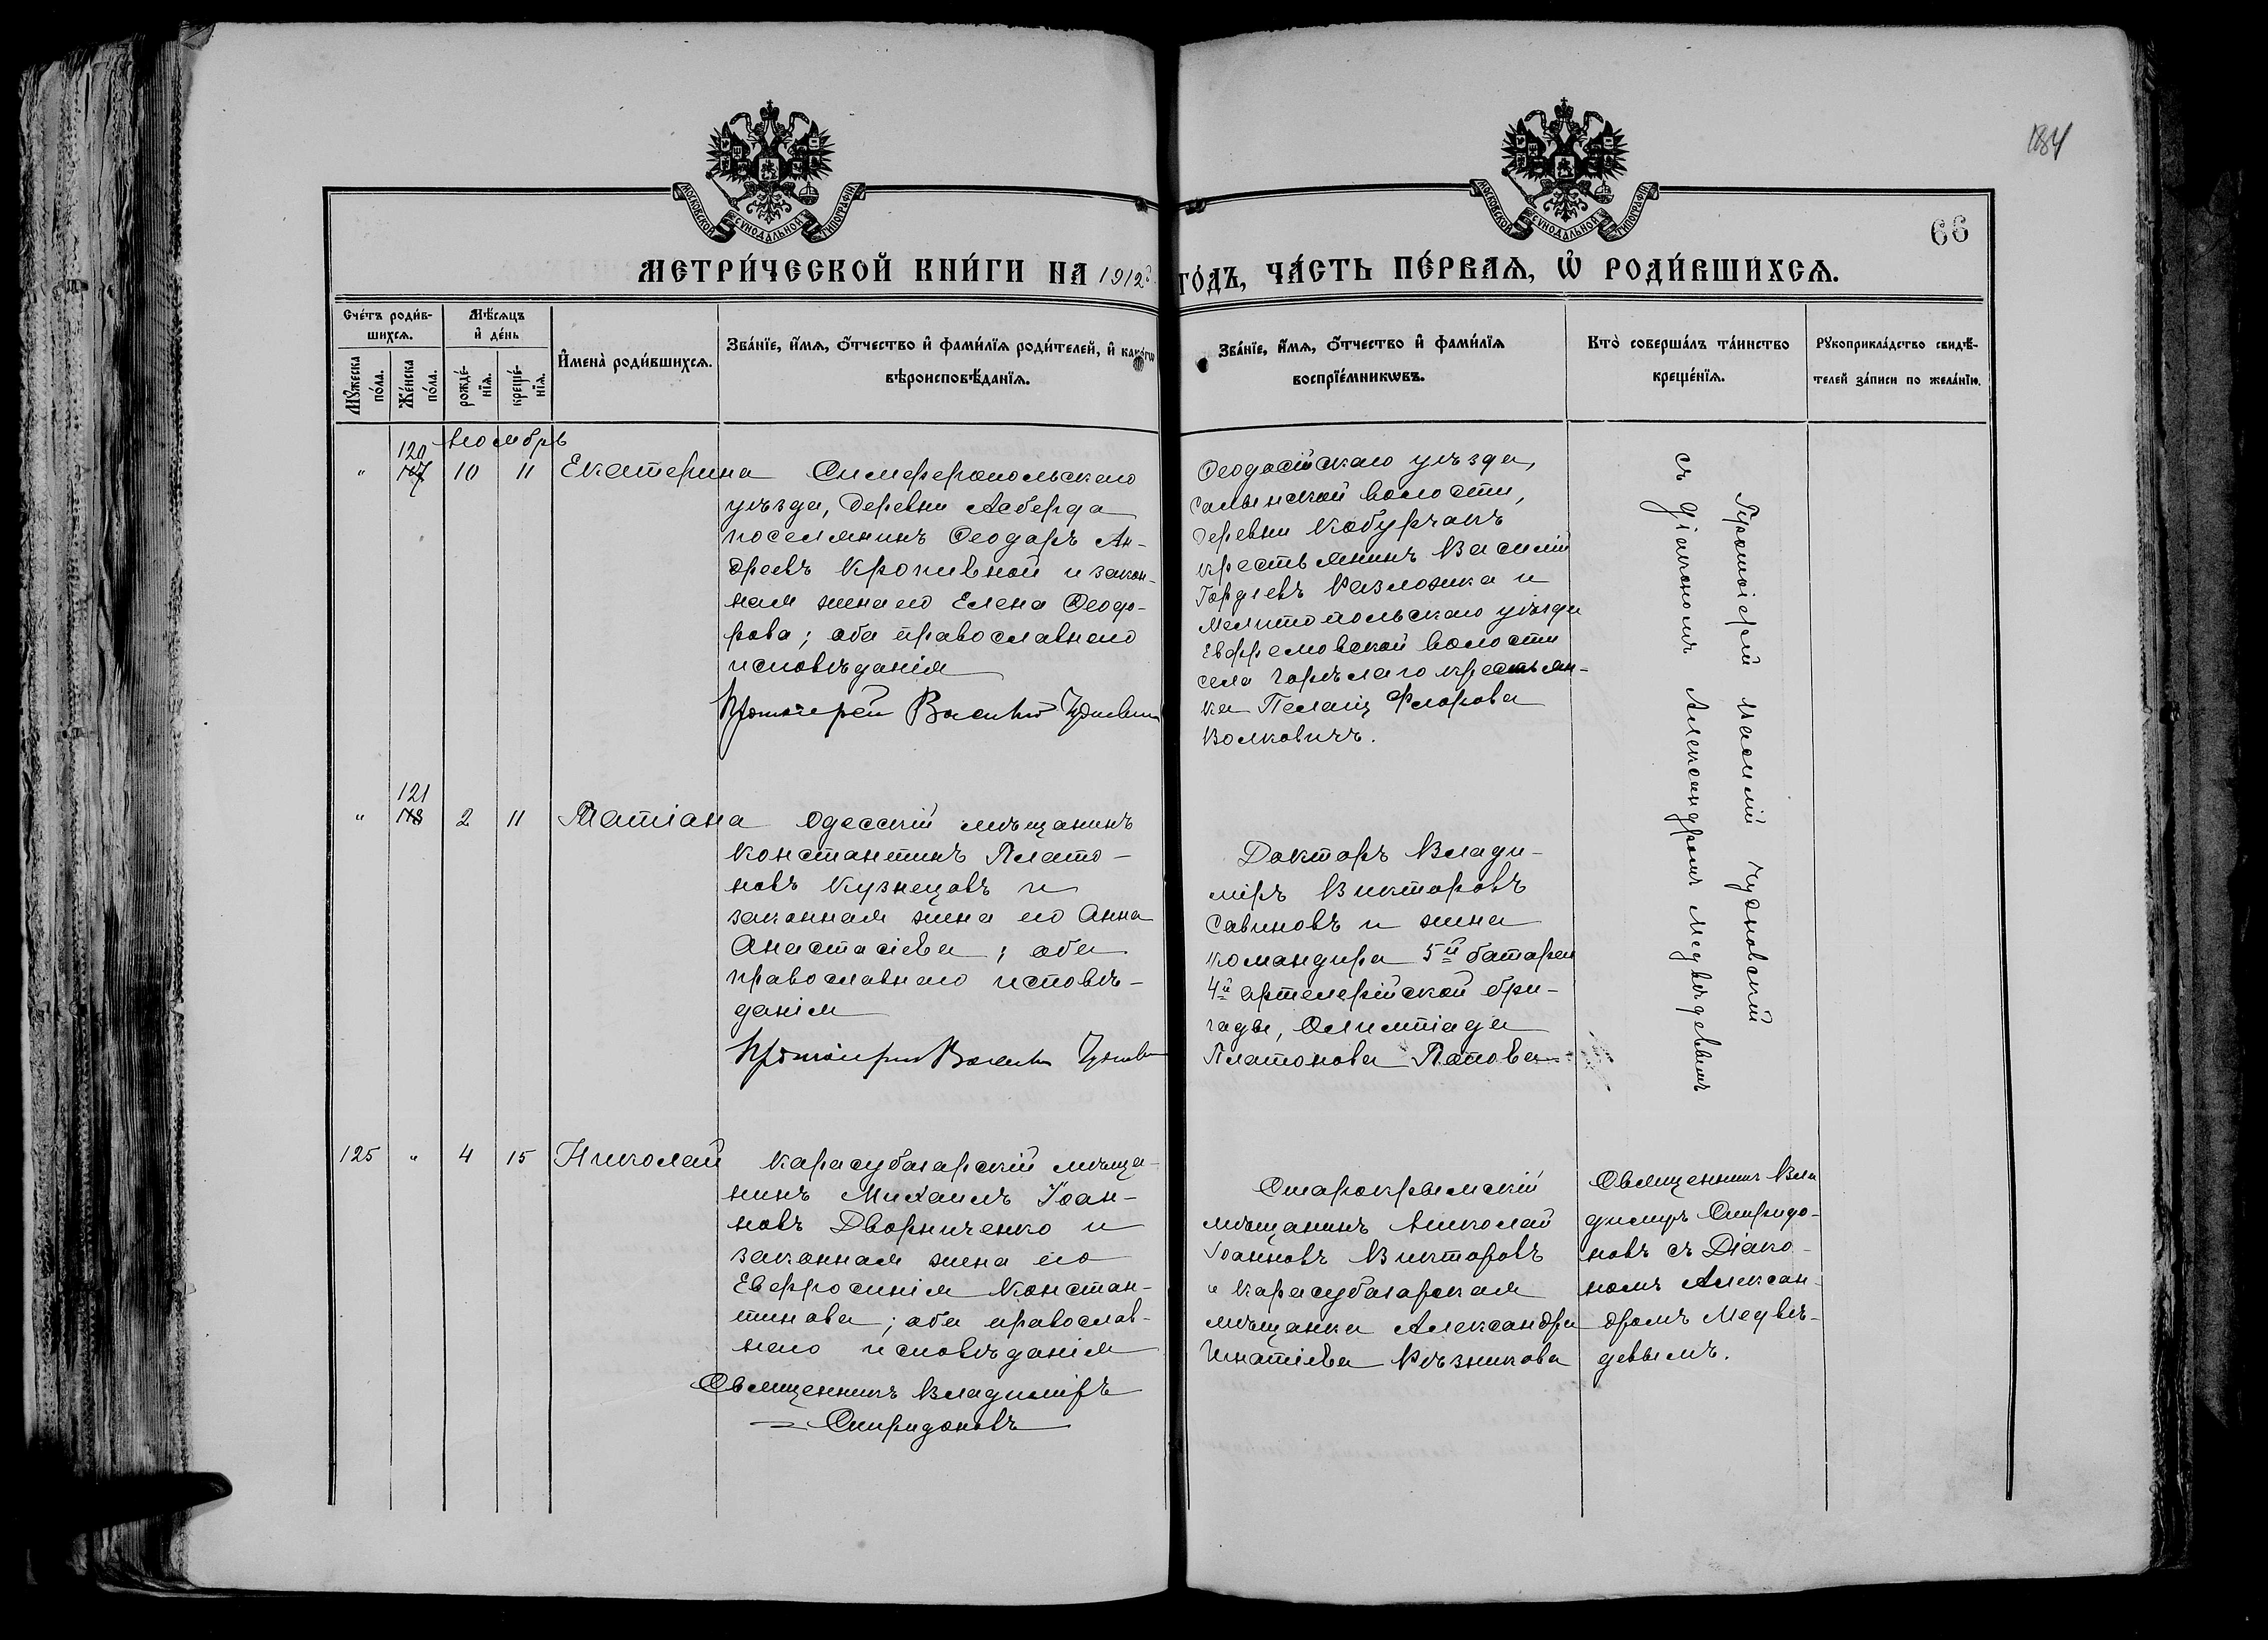 184
66
МОСКОВСКОЙ СѴНОДАЛЬНОЙ ТИПОГРАФІИ
МОСКОВСКОЙ СѴНОДАЛЬНОЙ ТИПОГРАФІИ
МЕТРИ́ЧЕСКОЙ КНИ́ГИ НА 1912й ГО́ДЪ, ЧА́СТЬ ПЕ́РВАѦ, Ѡ҆ РОДИ́ВШИХСѦ.
Сче́тъ роди́в-
шихсѧ.
Мꙋ́жеска
по́ла.
Же́нска
по́ла.
Мѣ́сѧцъ
и҆ де́нь
рожде́-
нїѧ.
креще́-
нїѧ.
И҆мена̀ роди́вшихсѧ.
Зва́нїе, и҆́мѧ, ѻ҆́тчество и҆ фами́лїѧ роди́телей, и҆ како́гѡ
вѣроисповѣ́данїѧ.
Зва́нїе, и҆́мѧ, ѻ҆́тчество и҆ фами́лїѧ
воспрїе́мникѡвъ.
Кто̀ соверша́лъ та́инство
креще́нїѧ.
Рꙋкоприкла́дство свидѣ́-
телей за́писи по жела́нїю.
Ноябрь
"
120
117
10
11
Екатерина
Симферопольскаго
уѣзда, деревни Асберда
поселянинъ Ѳеодоръ Ан-
дреевъ Кропивной и закон-
ная жена его Елена Ѳеодо-
рова; оба православнаго
исповѣданія
Протоіерей Василій
Ѳеодосійскаго уѣзда,
Салынской волости,
деревни Кабурчакъ
крестьянинъ Василій
Гордіевъ Разложка и
Мелитопольскаго уѣзда
Ефремовской волости
села Горѣлаго крестьян-
ка Пелагія Флорова
Волковичъ.
Протоіерей Василій Чудновскій
съ Діакономъ Александромъ Медвѣдевымъ
"
121
118
2
11
Татіана
Одесскій мѣщанинъ
Константинъ Плато-
новъ Кузнецовъ и
законная жена его Анна
Анастасіева; оба
православнаго исповѣ-
данія
Протоіерей Василій
Докторъ Влади-
міръ Викторовъ
Савиновъ и жена
командира 5й батареи
4й артелерійской бри-
гады, Олимпіада
Платонова Попова
125
"
4
15
Николай
Карасубазарскій мѣща-
нинъ Михаилъ Іоан-
новъ Дворниченко и
законная жена его
Евфросинія Констан-
тинова; оба православ-
наго исповѣданія
Священникъ Владиміръ
Спиридоновъ
Старокрымскій
мѣщанинъ Николай
Іоанновъ Викторовъ
и Карасубазарская
мѣщанка Александра
Игнатіева Рѣзникова
Священникъ Вла
димиръ Спиридо-
новъ съ Діако-
номъ Алексан-
дромъ Медвѣ-
девымъ.